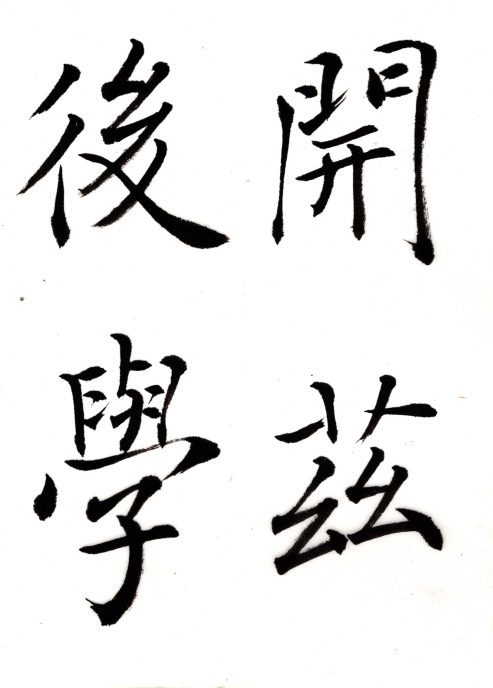 開茲
後學